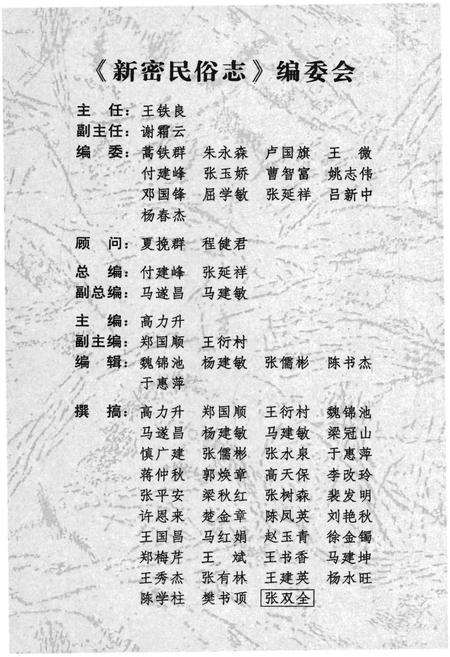 《新密民俗志》编委会
主 任：王铁良
副主任：谢霜云
编 委：蒿铁群 朱永森 卢国旗 王 微
付建峰 张玉娇 曹智富 姚志伟
邓国锋 屈学敏 张延祥 吕新中
杨春杰
顾 问：夏挽群 程健君
总 编：付建峰 张延祥
副总编：马遂昌 马建敏
主 编：高力升
副主编：郑国顺 王衍村
编 辑：魏锦池 杨建敏 张儒彬 陈书杰
于惠萍
撰 搞：高力升 郑国顺 王衍村 魏锦池
马遂昌 杨建敏 马建敏 梁冠山
慎广建 张儒彬 张水泉 于惠萍
蒋仲秋 郭焕章 高天保 李改玲
张平安 梁秋红 张树森 裴发明
许恩来 楚金章 陈凤英 刘艳秋
王国昌 马红娟 赵玉青 徐金镯
郑梅芹 王 斌 王书香 马建坤
王秀杰 张有林 王建英 杨水旺
陈学柱 樊书顶 张双全